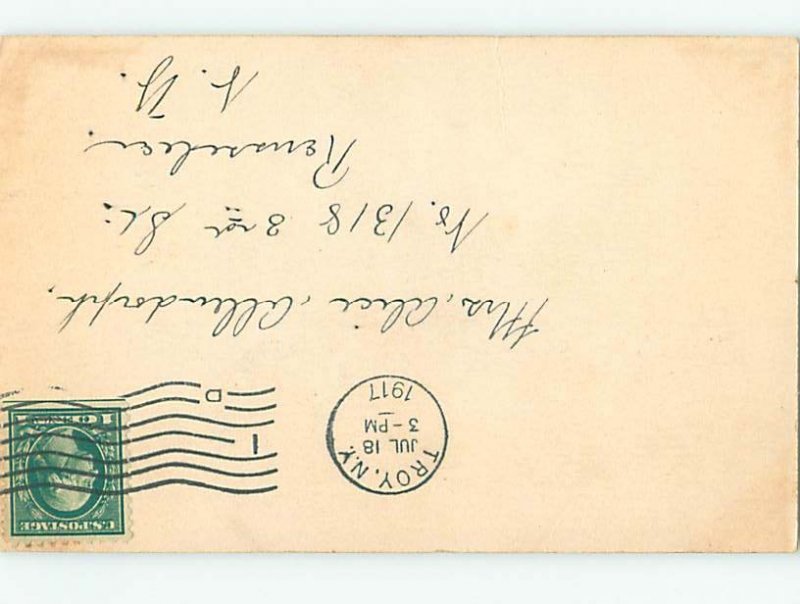 U.S. POSTAGE
1 CENT 1
TROY, N.Y.
JUL 18
3 - PM
1917
1
D
Mrs. Alice Allendorph,
No. 1318 3rd St.
Rensselaer.
N. Y.